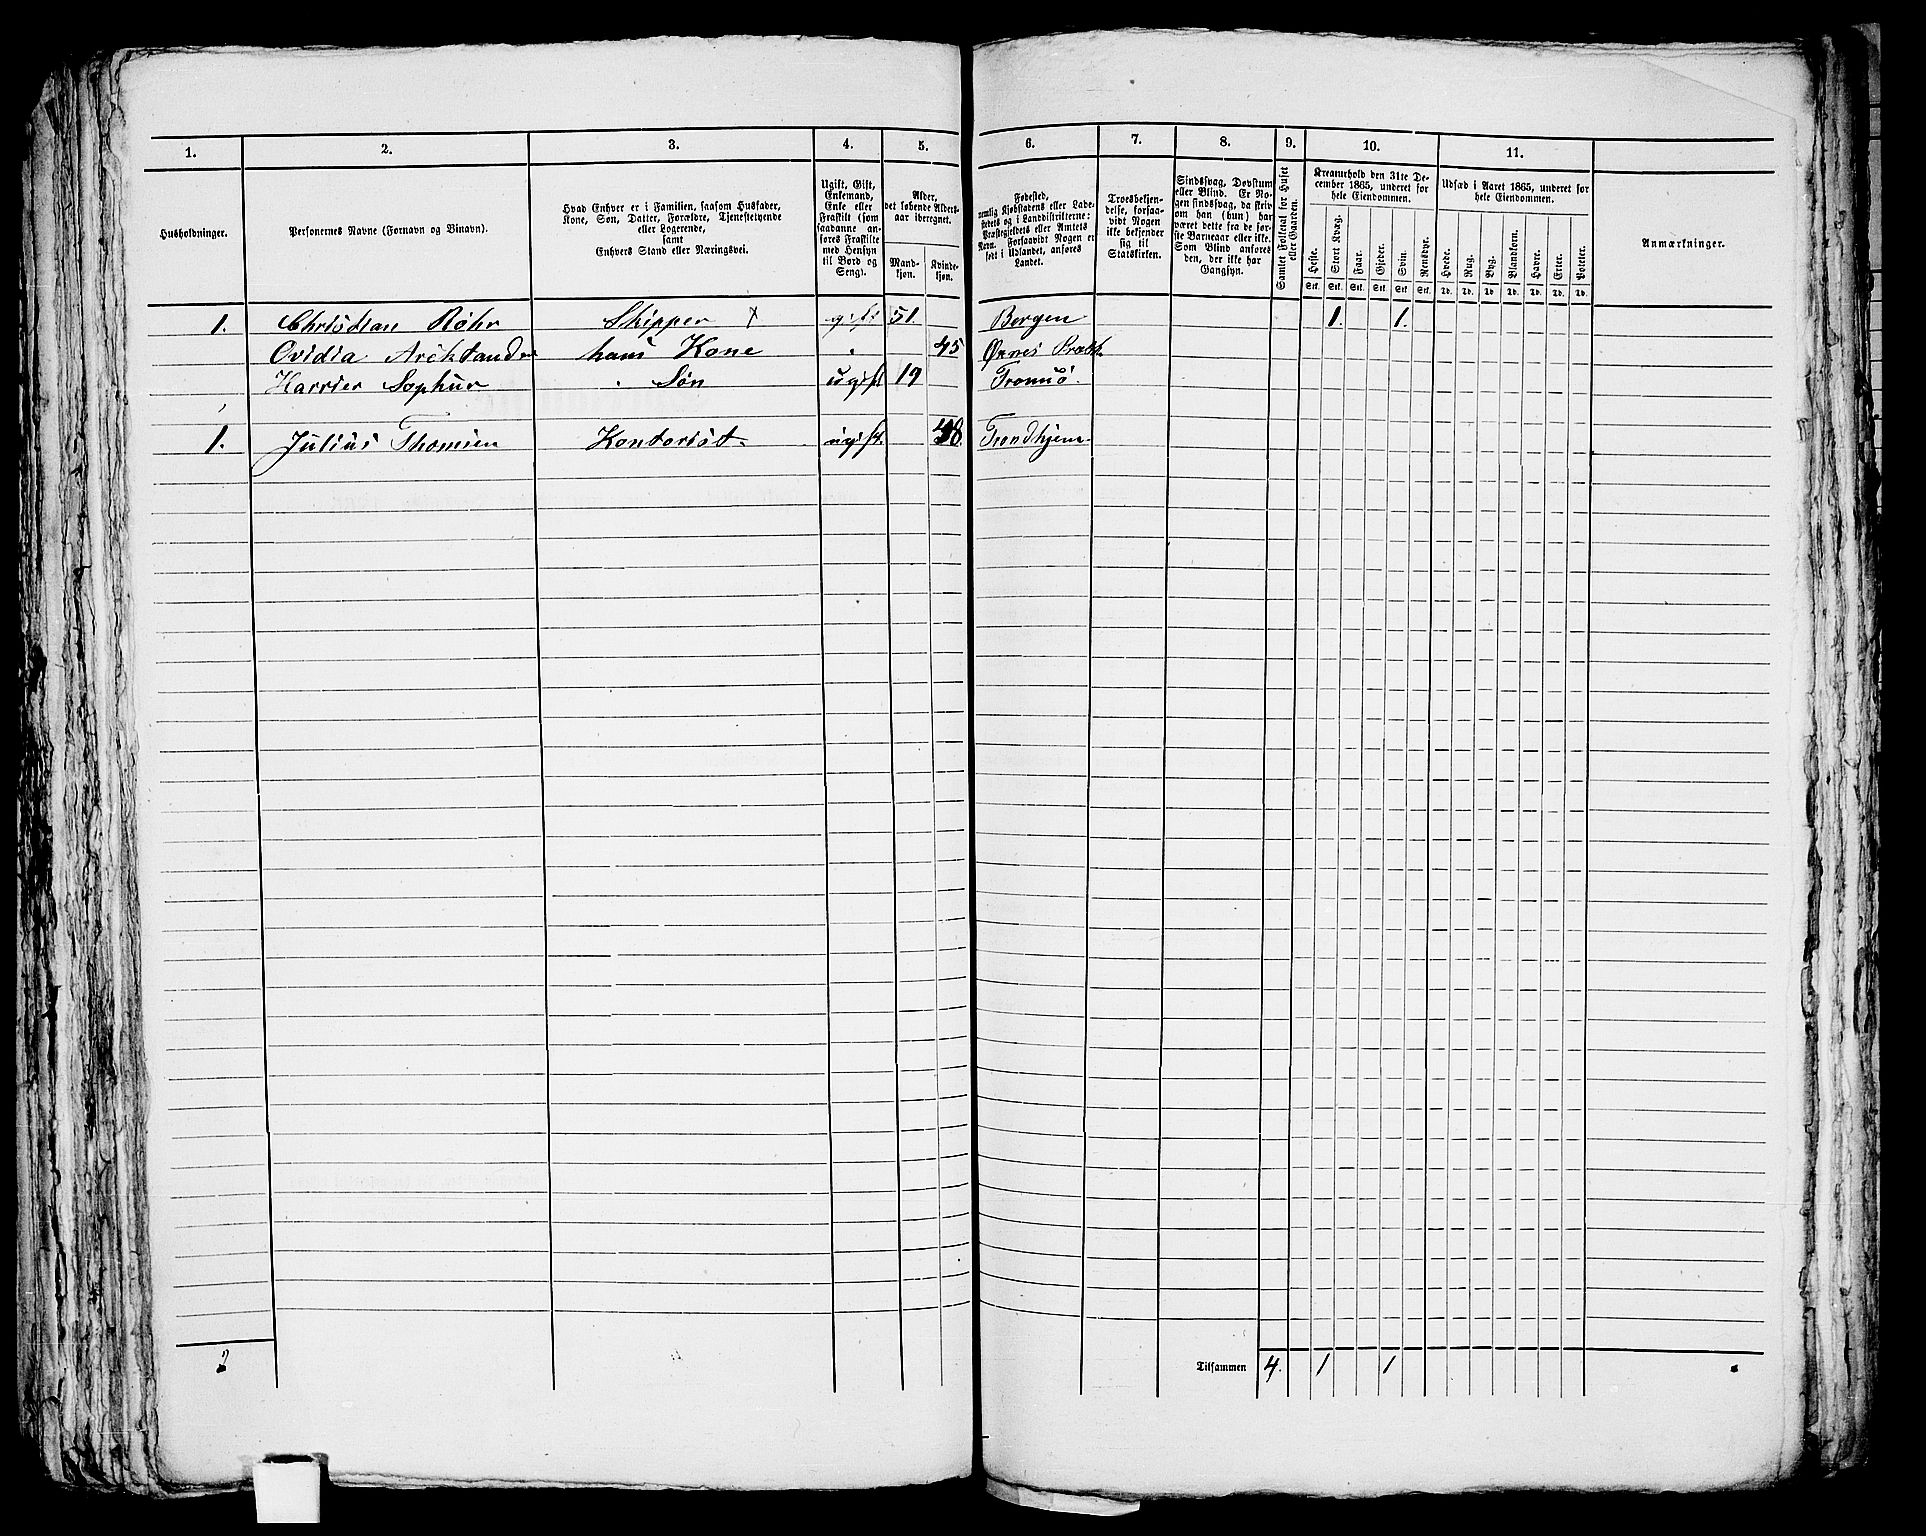 1. 2. 3. 4. 5. 6. 7. 8. 9. 10. 11.
Husholdninger.
Personernes Navne (Fornavn og Binavn).
Hvad Enhver er i Familien, saasom Husfader,
Kone, Søn, Datter, Forældre, Tjenestetyende
eller Logerende,
samt
Enhvers Stand eller Næringsvei.
Ugift, Gift,
Enkemand,
Enke eller
Fraskilt (som
saadanne an-
føres Fraskilte
med Hensyn
til Bord og
Seng).
Alder,
det løbende Alders-
aar iberegnet.
Mand-
kjøn.
Kvinde-
kjøn.
Fødested,
nemlig Kjøbstadens eller Lade-
stedets og i Landdistrikterne:
Præstegjeldets eller Amtets
Navn. Forsaavidt Nogen er
født i Udlandet, anføres
Landet.
Troesbekjen-
delse, forsaa-
vidt Nogen
ikke bekjender
sig til
Statskirken.
Sindssvag, Døvstum
eller Blind. Er No-
gen sindssvag, da skriv
om han (hun) har
været dette fra de før-
ste Barneaar eller ikke.
Som Blind anføres
den, der ikke har
Gangsyn.
Samlet Folketal for Huset
eller Gaarden.
Kreaturhold den 31te De-
cember 1865, underet for
hele Eiendommen.
Heste. Stort Kvæg. Faar. Gjeder. Svin. Rensdyr.
Stk. Stk. Stk. Stk. Stk. Stk.
Udsæd i Aaret 1865, underet for
hele Eiendommen.
Hvede. Rug. Byg. Blandkorn. Havre. Erter. Poteter.
Td. Td. Td. Td. Td. Td. Td.
Anmærkninger.
1. Christian Röhr Skipper gift 51. Bergen 1. 1.
Ovidia hans Kone 45
Søn ugift 19 Tromsö.
1. Julius Thomsen Kontorist ugift. Trondhjem.
2 Tilsammen 4. 1 1